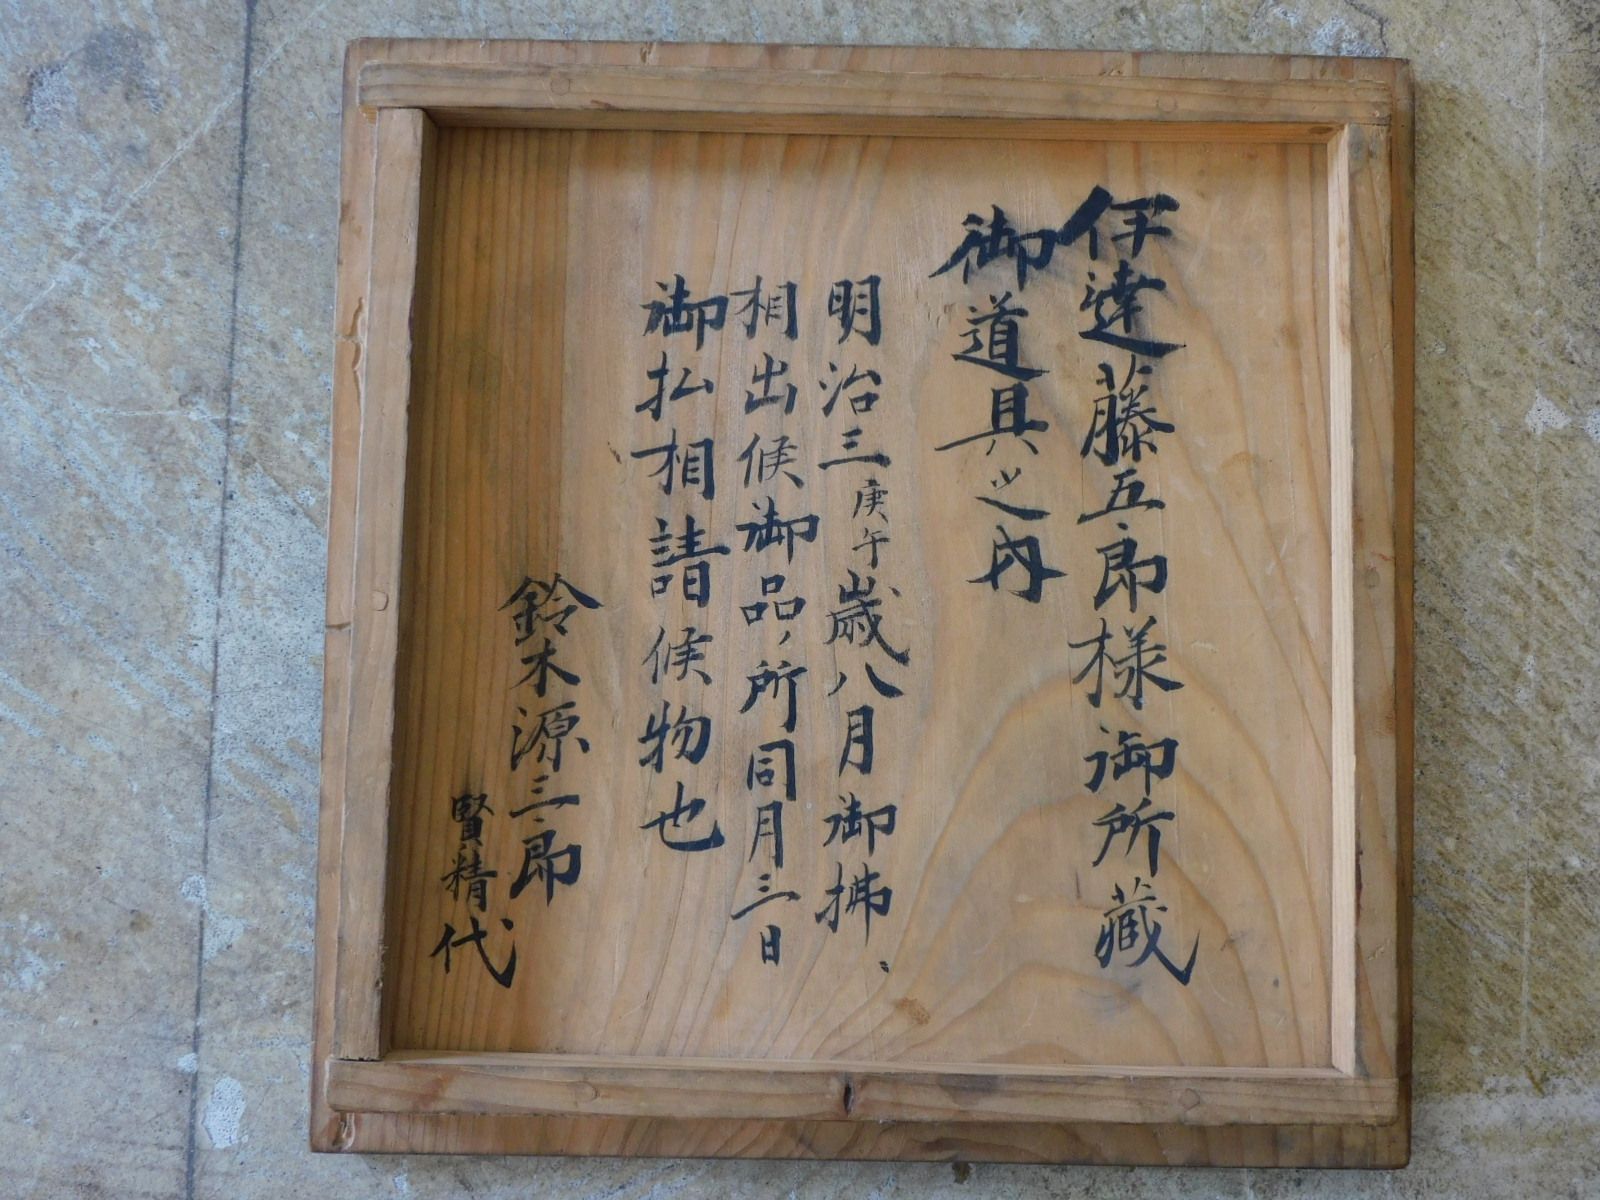 伊達藤五郎様御所蔵
御道具之内
明治三庚午歳八月御拂ニ
相出候御品ノ所同月三日
御払相請候物也
鈴木源三郎
賢精代